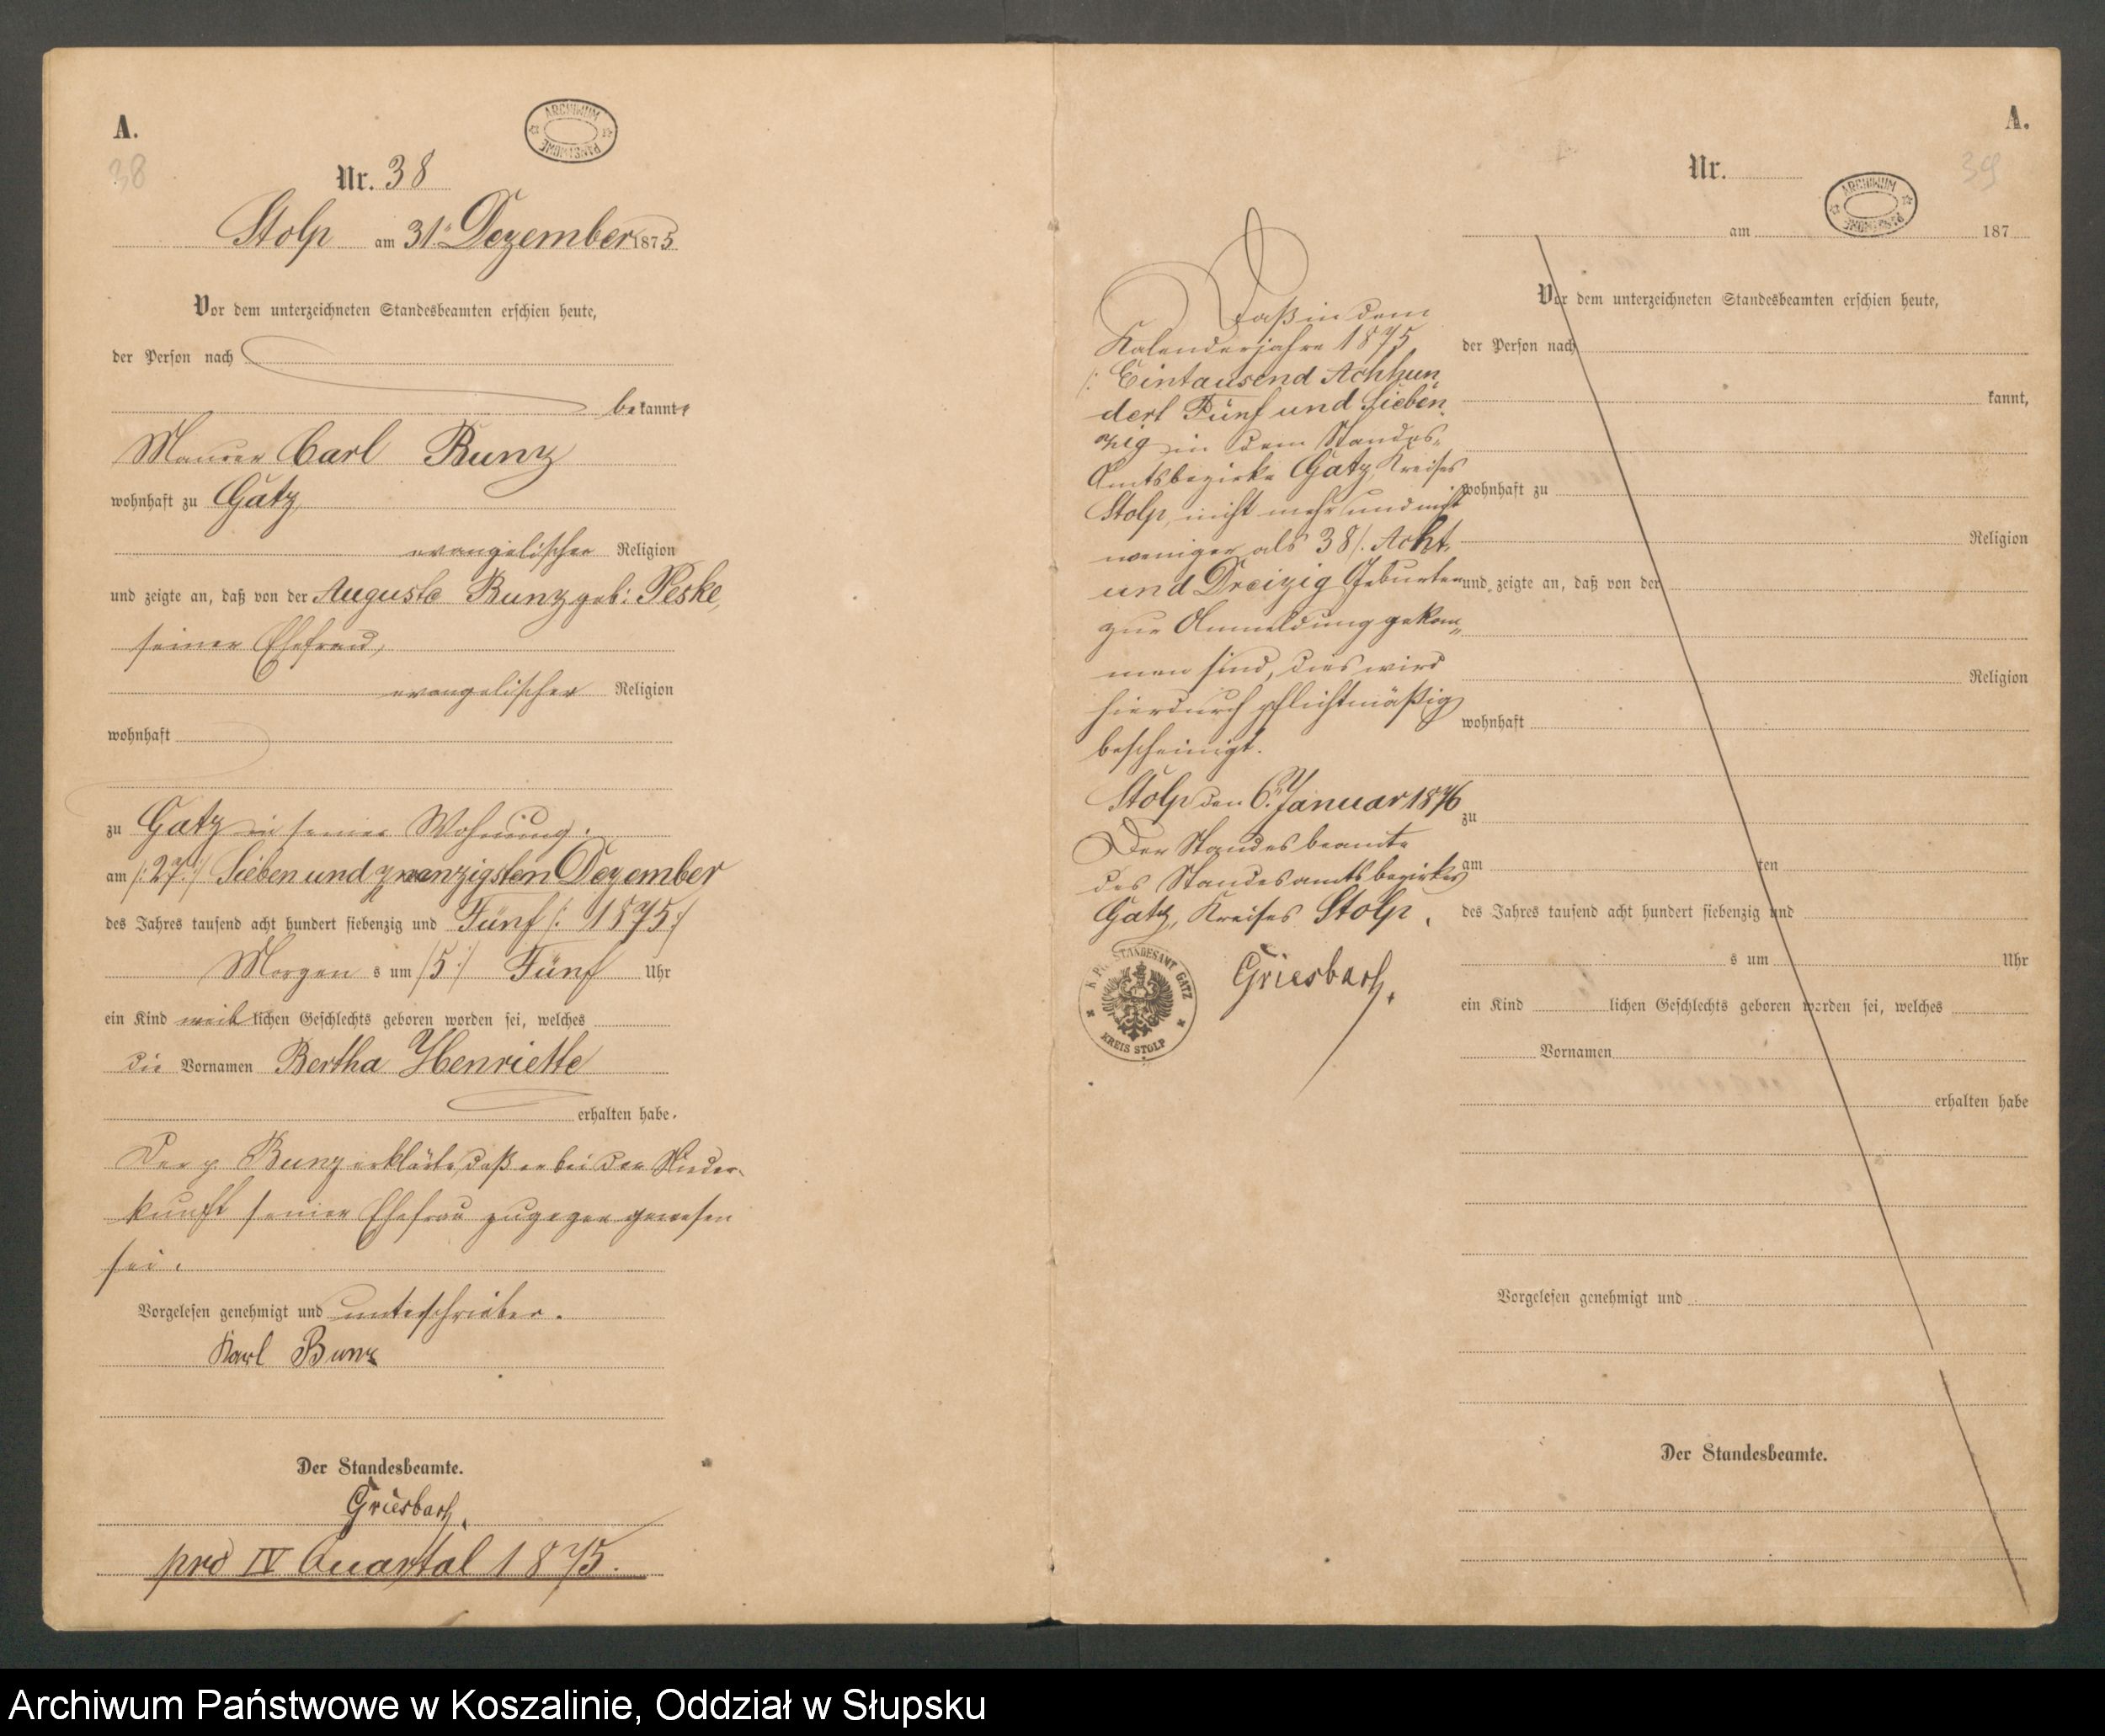 A.
38
ARCHIWUM PAŃSTWOWE
Nr. 38
Stolp am 31. Dezember 1875
Vor dem unterzeichneten Standesbeamten erschien heute,
der Person nach
bekannt,
Maurer Carl Bunz
wohnhaft zu Gatz
evangelischer Religion
und zeigte an, daß von der Auguste Bunz geb: Peske,
seiner Ehefrau,
evangelischer Religion
wohnhaft
zu Gatz in seiner Wohnung.
am /:27:/ Sieben und zwanzigsten Dezember
des Jahres tausend acht hundert siebenzig und Fünf /: 1875:/
Morgen s um /5:/ Fünf Uhr
ein Kind weiblichen Geschlechts geboren worden sei, welches
die Vornamen Bertha Henriette
erhalten habe.
Der p Bunz erklärte, daß er bei der Nieder-
kunft seiner Ehefrau zugegen gewesen
sei.
Vorgelesen genehmigt und unterschrieben.
Karl Bunz
Der Standesbeamte.
Griesbach.
pro IV Quartal 1875.
Daß in dem
Kalenderjahre 1875
/: Eintausend Achthun
dert Fünf und Sieben
zig in dem Standes-
Amtsbezirke Gatz, Kreises
Stolp, nicht mehr und nicht
weniger als 38 /. Acht
und Dreizig Geburten
zur Anmeldung gekom-
men sind, dies wird
hierdurch pflichtmäßig
bescheinigt.
Stolp den 6. Januar 1876
Der Standesbeamte
des Standesamtsbezirkes
Gatz, Kreises Stolp.
Griesbach.
K. PR. STANDESAMT GATZ
KREIS STOLP
A.
39
Nr.
ARCHIWUM PAŃSTWOWE
am 187
Vor dem unterzeichneten Standesbeamten erschien heute,
der Person nach
kannt,
wohnhaft zu
Religion
und zeigte an, daß von der
Religion
wohnhaft
zu
am ten
des Jahres tausend acht hundert siebenzig und
s um Uhr
ein Kind lichen Geschlechts geboren worden sei, welches
Vornamen
erhalten habe
Vorgelesen genehmigt und
Der Standesbeamte.
Archiwum Państwowe w Koszalinie, Oddział w Słupsku